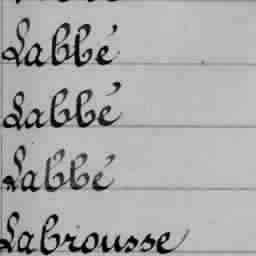 Labbé
Labbé
Labbé
Labrousse